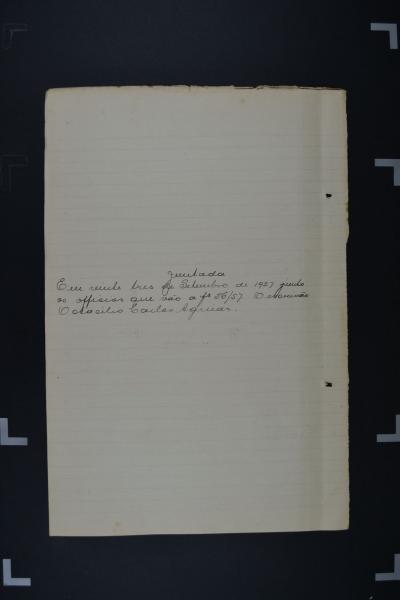 Juntada
Em vinte tres de Setembro de 1927 junto
os officios que vão a fs 56/57. O escrivão
Octacilio Carlos Aguiar.